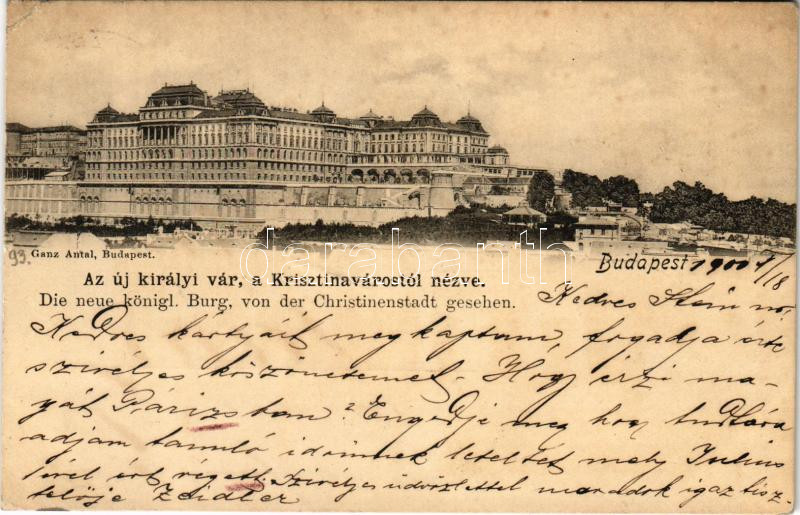 darabanth
93.
Ganz Antal, Budapest.
Budapest 1900 4/18
Az új királyi vár, a Krisztinavárostól nézve.
Die neue königl. Burg, von der Christinenstadt gesehen.
Kedves Stein nő,
Kedves kártyáit megkaptam, fogadja érte
szivélyes köszönetemet. Hogy érzi ma-
gát Párizsban? Engedje meg hogy tudtára
adjam tanuló időmnek leteltét mely Julius
ével ért véget. Szivélyes üdvözlettel maradok igaz tisz-
telője Zeidler